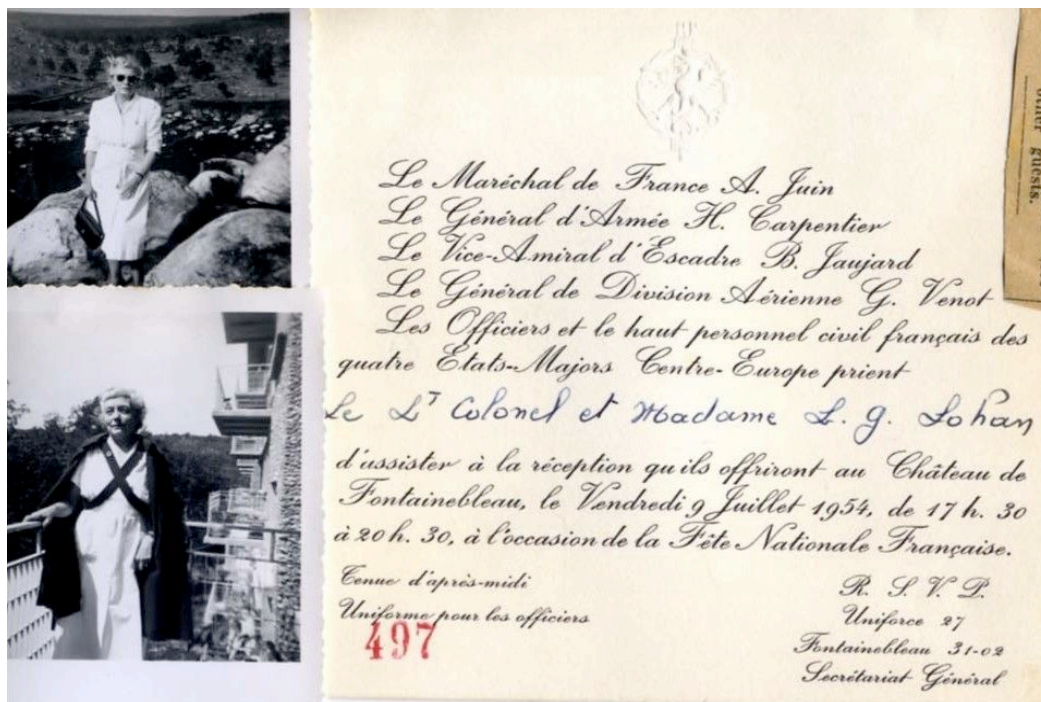 other guests.
Le Maréchal de France A. Juin
Le Général d'Armée H. Carpentier
Le Vice-Amiral d'Escadre B. Jaujard
Le Général de Division Aérienne G. Venot
Les Officiers et le haut personnel civil français des
quatre Etats-Majors Centre-Europe prient
Le Lt Colonel et Madame L. G. Lohan
d'assister à la réception qu'ils offriront au Château de
Fontainebleau, le Vendredi 9 Juillet 1954, de 17 h. 30
à 20 h. 30, à l'occasion de la Fête Nationale Française.
Tenue d'après-midi
Uniforme pour les officiers
497
R. S. V. P.
Uniforce 27
Fontainebleau 31-02
Secrétariat Général